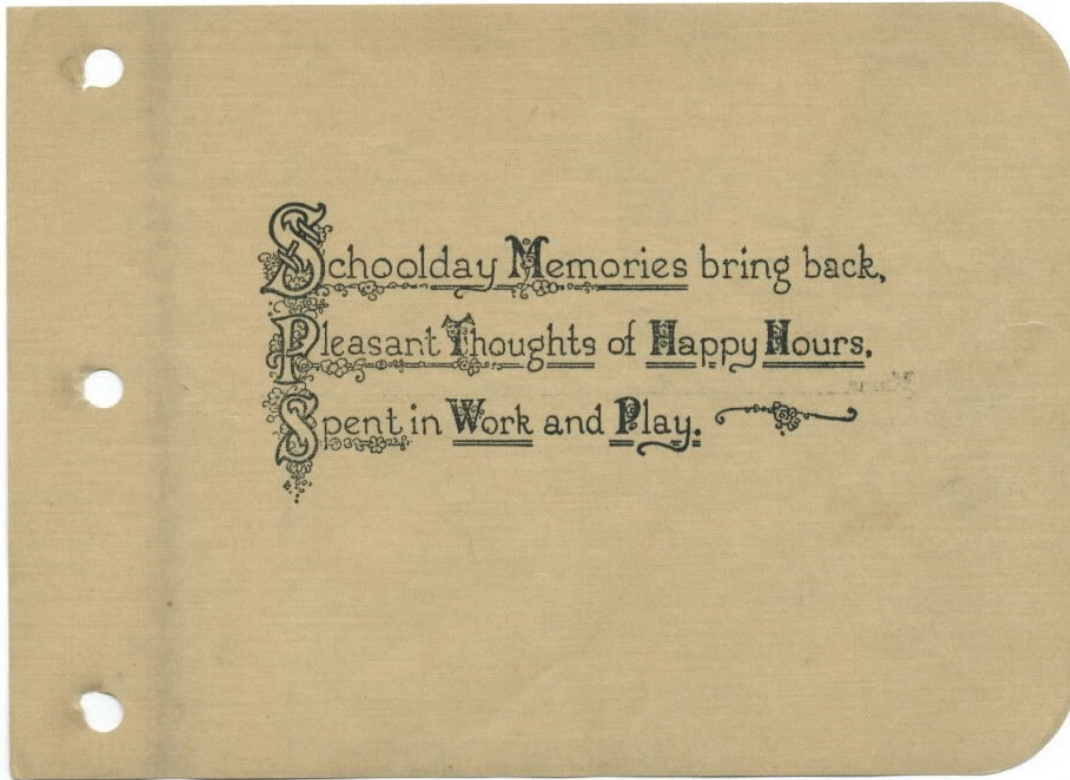 Schoolday Memories bring back,
Pleasant Thoughts of Happy Hours,
Spent in Work and Play.